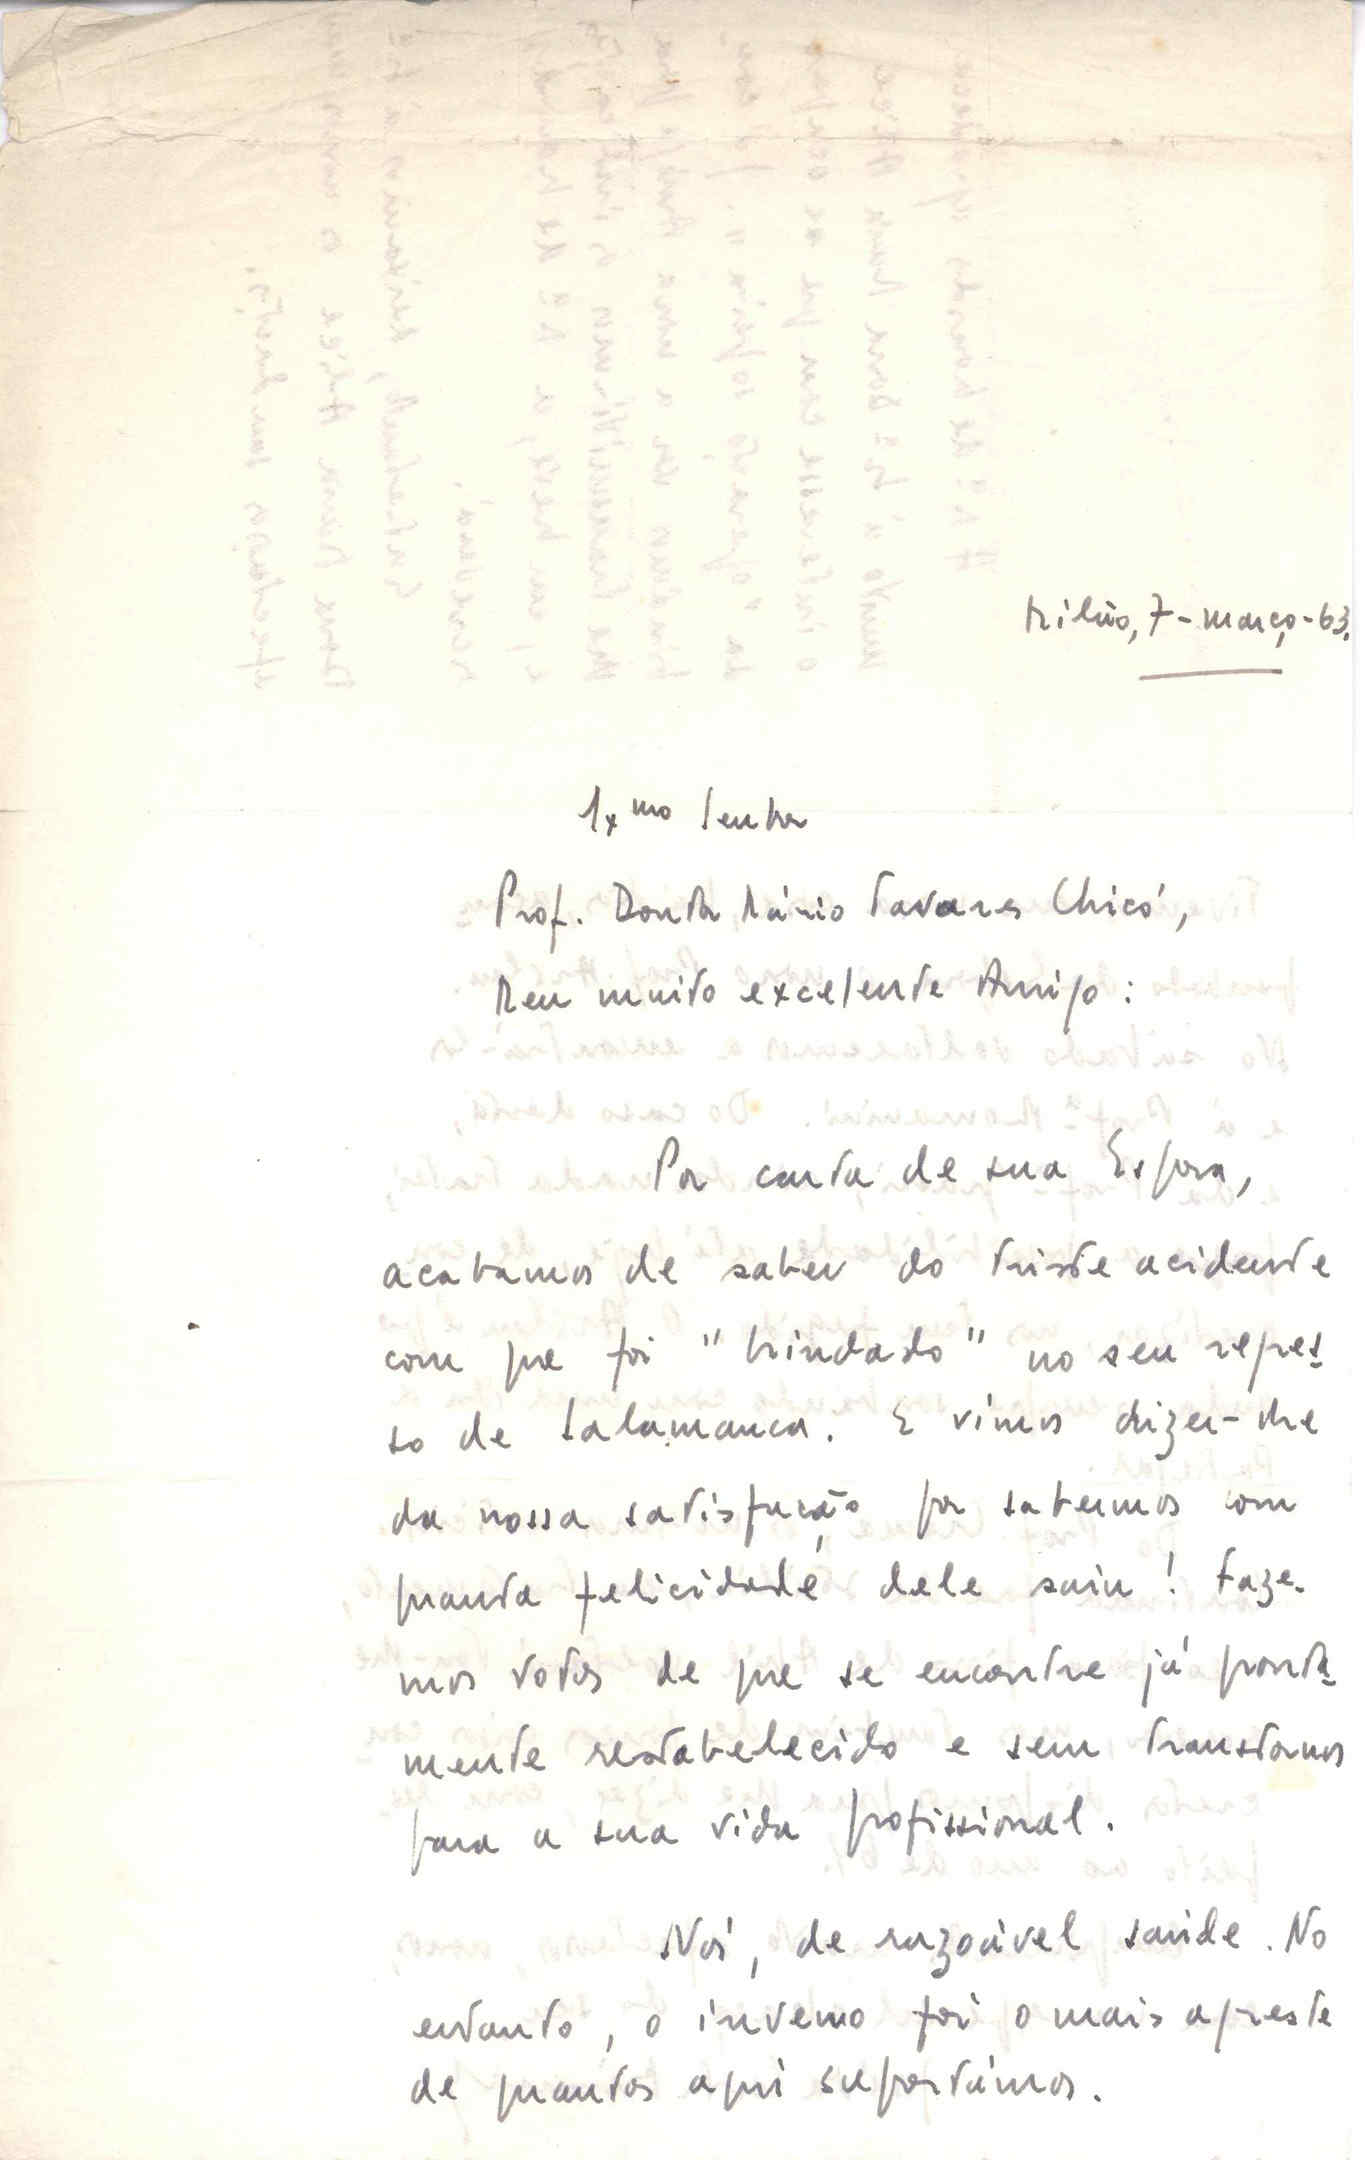 Milão, 7-março-63.
Ex.mo Senhor
Prof. Doutor Mário Tavares Chicó,
Meu muito excelente Amigo:
Por carta de sua Espôsa,
acabamos de saber do triste acidente
com que foi "brindado" no seu regres-
so de Salamanca. E vimos dizer-lhe
da nossa satisfação por sabermos com
quanta felicidade dele saiu! Faze-
mos votos de que se encontre já pronta-
mente restabelecido e sem transtornos
para a sua vida profissional.
Nós, de razoável saúde. No
entanto, o inverno foi o mais agreste
de quantos aqui suportámos.